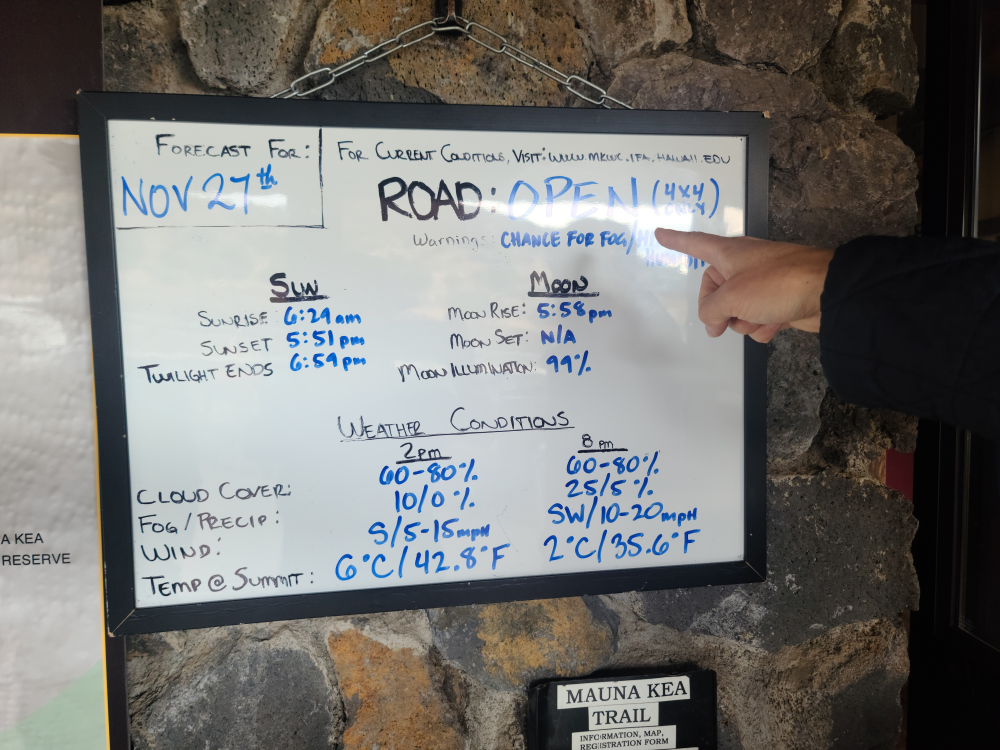 FORECAST FOR:
NOV 27th
FOR CURRENT CONDITIONS, VISIT: WWW.MKWC.IFA.HAWAII.EDU
ROAD: OPEN (4x4 ONLY)
Warnings: CHANCE FOR FOG/
SUN
SUNRISE 6:29am
SUNSET 5:51pm
TWILIGHT ENDS 6:59pm
MOON
MOON RISE: 5:58pm
MOON SET: N/A
MOON ILLUMINATION: 99%
WEATHER CONDITIONS
2pm 8pm
CLOUD COVER: 60-80% 60-80%
FOG/PRECIP: 10/0% 25/5%
WIND: S/5-15mpH SW/10-20mpH
TEMP @ SUMMIT: 6°C/42.8°F 2°C/35.6°F
A KEA
RESERVE
MAUNA KEA
TRAIL
INFORMATION, MAP,
REGISTRATION FORM